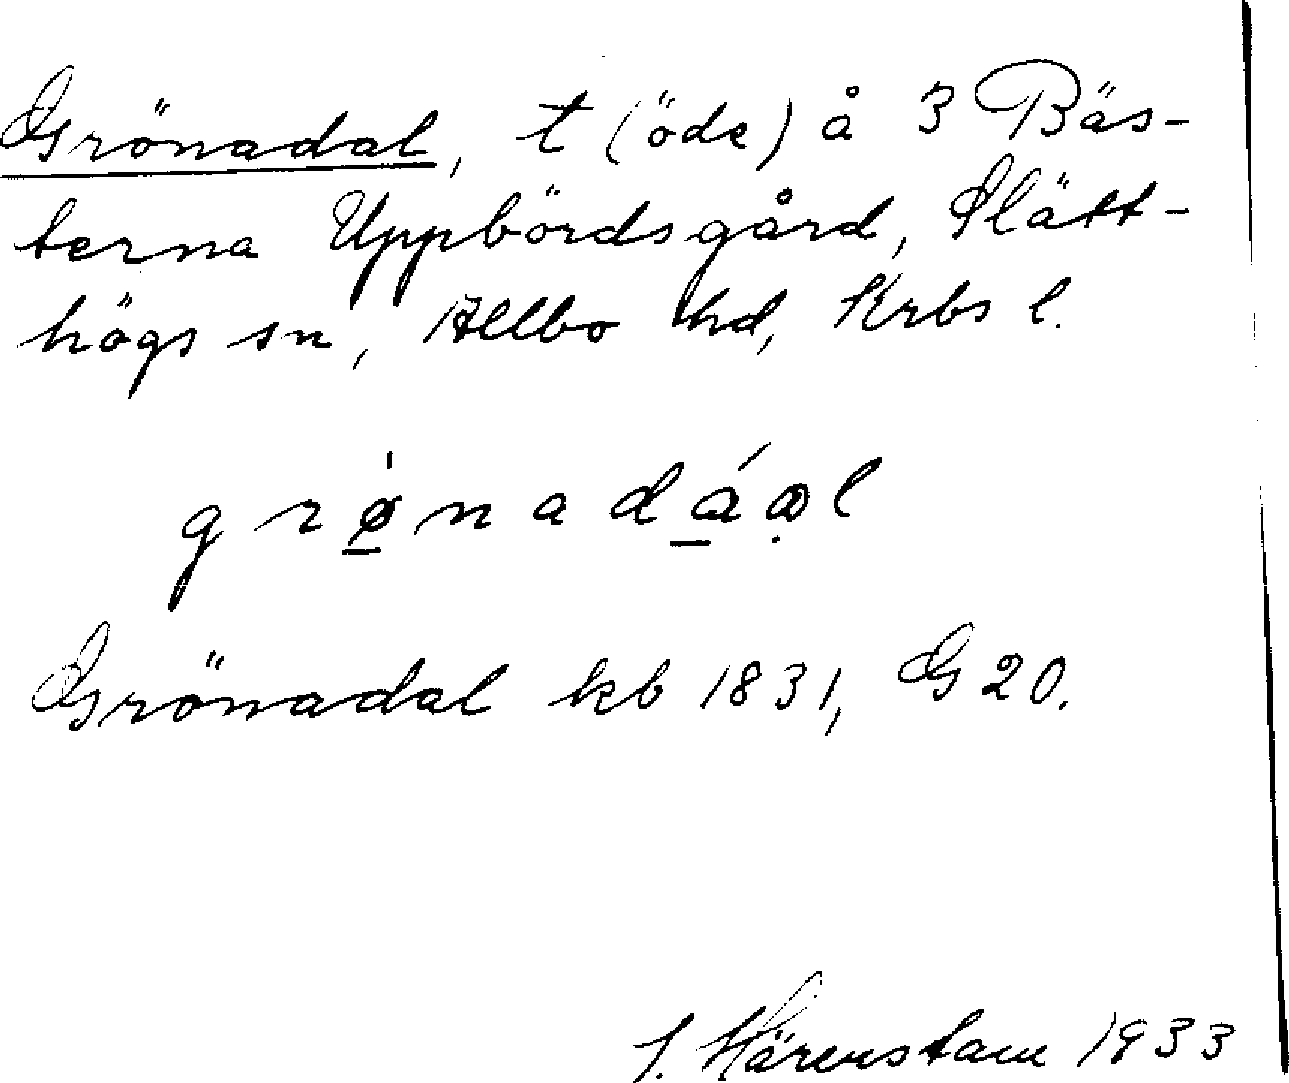 Grönadal, t (öde) å 3 Bäs-
terna Uppbördsgård, Slätt-
högs sn, Allbo hd, Krbs l.
grø̀nadáɒl
Grönadal kb 1831, G 20.
J. Härenstam 1933